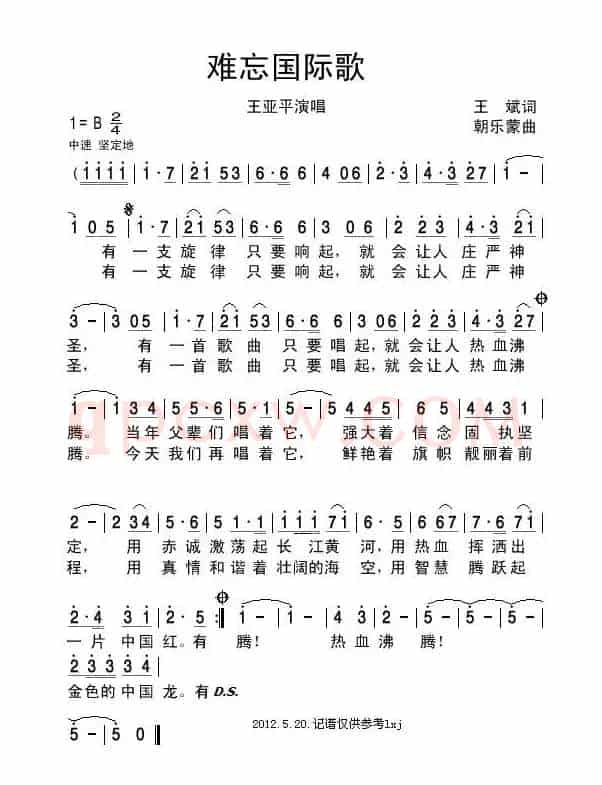 难忘国际歌
王亚平演唱
王 斌词
1= B 2/4
朝乐蒙曲
中速 坚定地
(1111 | 1·7 | 2153 | 6·6 6 | 4 06 | 223 | 4·3 27 | 1 - |
1 05 | 1·7 | 21 53 | 6·6 6 | 3 06 | 2 23 | 4·3 21 |
有 一支旋 律 只要响起, 就 会让人 庄严神
有 一支旋 律 只要响起, 就 会让人 庄严神
3 - | 3 05 | 1·7 | 21 53 | 6·6 6 | 3 06 | 2 23 | 4·3 27 |
圣, 有 一首歌曲 只要唱起,就会让人 热血沸
圣, 有 一首歌曲 只要唱起,就会让人 热血沸
1 - | 1 34 | 5 5·6 | 5 1 | 5 - | 5 445 | 6 6 5 | 4 3 1 |
腾。 当年 父辈们 唱着它, 强大着 信念固执坚
腾。 今天 我们再 唱着它, 鲜艳着 旗帜 靓丽着前
qpcxw.COM
2 - | 2 34 | 5·6 | 5·1 6 5 | 111 71 | 5·6 67 | 1·2 71 |
定, 用 赤诚激荡起长 江黄 河,用热血 挥洒出
程, 用 真情和谐着壮阔的海 空,用智慧 腾跃起
2·4 31 | 2·5 :|| 1 - | 1 - | 3 2 | 7 5 | 1 - | 1 - |
一片 中国红。有 腾! 热血沸 腾!
2 33 34 | 2·5 |
金色的中国 龙。有D.S.
5 - | 5 0 ||
2012.5.20.记谱仅供参考lxj